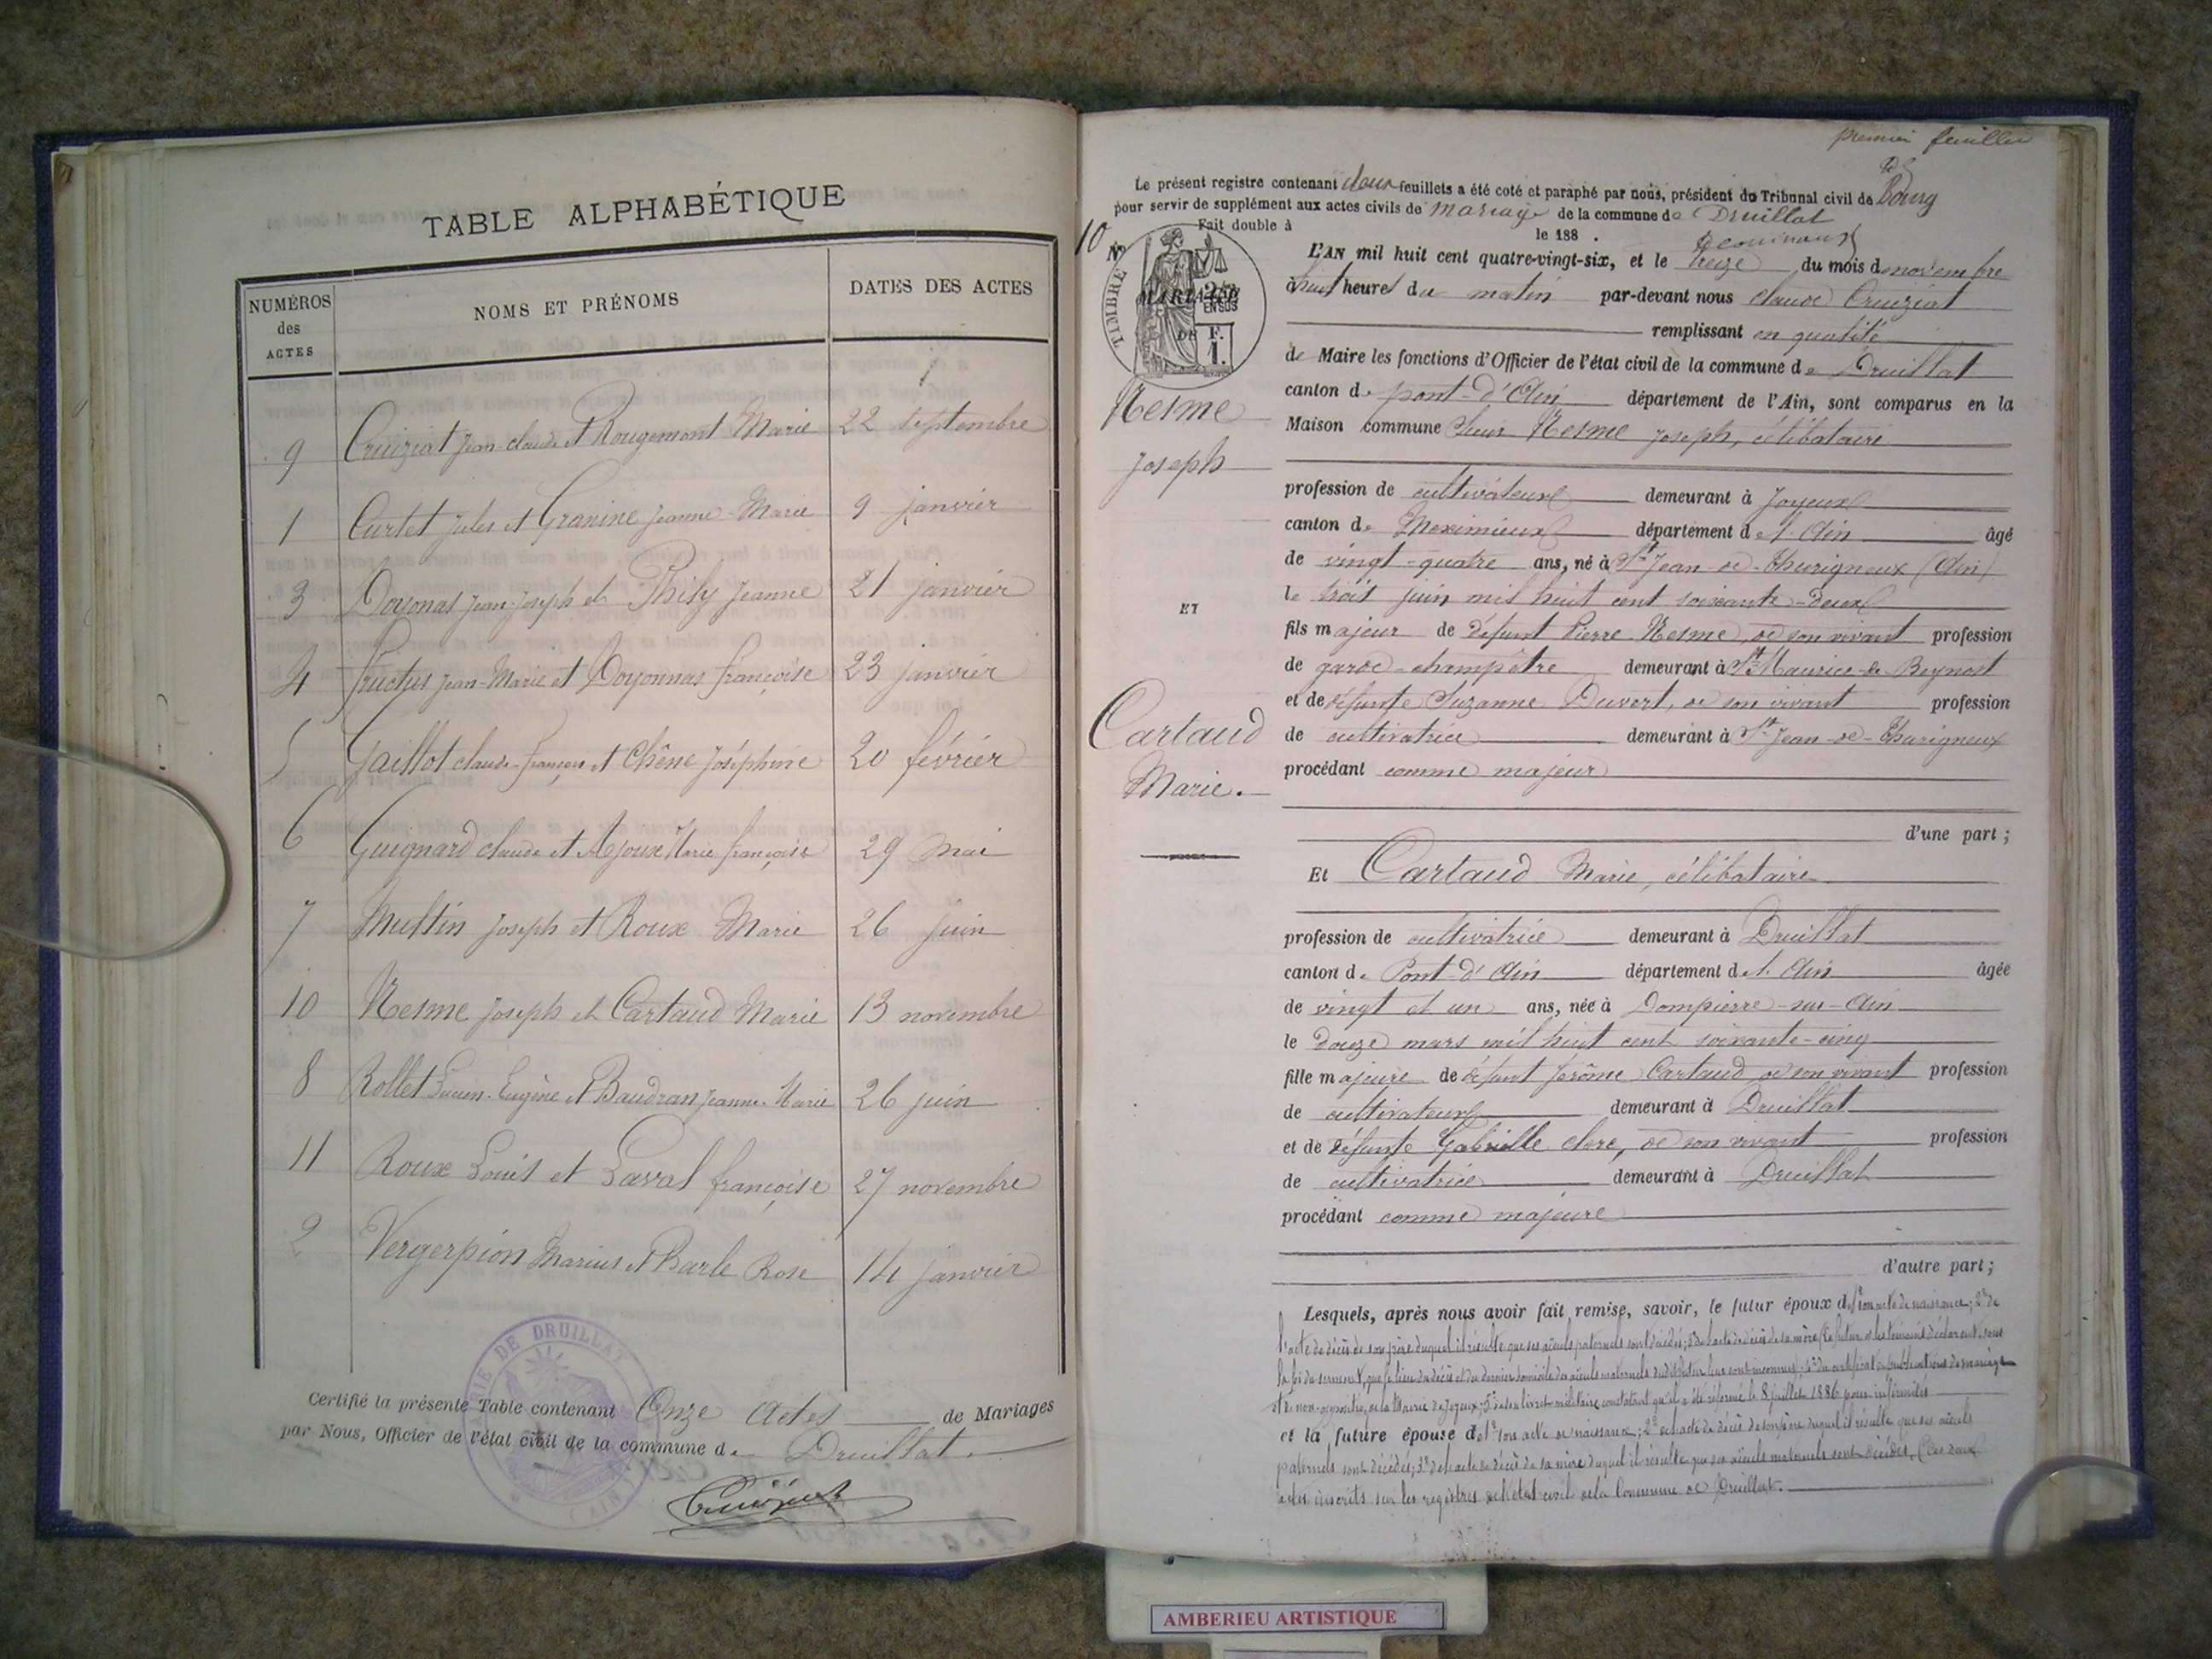 TABLE ALPHABÉTIQUE
NUMÉROS des ACTES
NOMS ET PRÉNOMS
DATES DES ACTES
9 Cruiziat Jean-claude et Rougemont Marie 22 septembre
1 Curtet Jules et Granine Jeanne-Marie 9 janvier
3 Doyonas Jean-Joseph et Phily Jeanne 21 janvier
4 Fructus Jean-Marie et Doyonnas françoise 23 janvier
5 Gaillot claude-françois et Chêne Joséphine 20 février
6 Guignard claude et Ajoux Marie françoise 29 Mai
7 Multin Joseph et Roux Marie 26 juin
10 Nesme Joseph et Cartaud Marie 13 novembre
8 Rollet Lucien-Eugène et Baudran Jeanne-Marie 26 juin
11 Roux Louis et Laval françoise 27 novembre
2 Vergerpion Marius et Barle Rose 14 janvier
Certifié la présente Table contenant Onze Actes de Mariages
par Nous, Officier de l'état civil de la commune de Druillat.
MAIRIE DE DRUILLAT
(AIN)
premier feuillet
Le présent registre contenant deux feuillets a été coté et paraphé par nous, président du Tribunal civil de Bourg
pour servir de supplément aux actes civils de mariage de la commune de Druillat
Fait double à le 188 .
10
N°
TIMBRE
MARIAGE
2/10 EN SUS
DE F. 1.
L'AN mil huit cent quatre-vingt-six, et le treize du mois de novembre
à huit heures du matin par-devant nous claude Cruiziat
remplissant en qualité
de Maire les fonctions d'Officier de l'état civil de la commune de Druillat
canton de pont-d'Ain département de l'Ain, sont comparus en la
Maison commune Sieur Nesme Joseph, célibataire
Nesme
Joseph
profession de cultivateur demeurant à Joyeux
canton de Meximieux département de l'Ain âgé
de vingt-quatre ans, né à St Jean-de-Thurigneux (Ain)
le trois juin mil huit cent soixante-deux
ET
fils majeur de défunt Pierre Nesme, de son vivant profession
de garde-champêtre demeurant à St Maurice-de-Beynost
et de défunte Suzanne Duvert, de son vivant profession
Cartaud
Marie.
de cultivatrice demeurant à St Jean-de-Thurigneux
procédant comme majeur
d'une part ;
Et Cartaud Marie, célibataire
profession de cultivatrice demeurant à Druillat
canton de Pont-d'Ain département de l'Ain âgée
de vingt et un ans, née à Dompierre-sur-Ain
le douze mars mil huit cent soixante-cinq
fille majeure de défunt Jérôme Cartaud, de son vivant profession
de cultivateur demeurant à Druillat
et de défunte Gabrielle clerc, de son vivant profession
de cultivatrice demeurant à Druillat
procédant comme majeure
d'autre part ;
Lesquels, après nous avoir fait remise, savoir, le futur époux de 1° son acte de naissance ; 2° de
l'acte de décès de son père duquel il résulte que ses aïeuls paternels sont décédés ; 3° de l'acte de décès de sa mère (le futur et les témoins déclarent sous
la foi du serment, que le lieu du décès et du dernier domicile des aïeuls maternels dudit futur leur sont inconnus) ; 4° du certificat de publications de mariage
et de non-opposition de la Mairie de Joyeux ; 5° de son livret militaire constatant qu'il a été réformé le 8 juillet 1886 pour infirmités
et la future épouse de 1° son acte de naissance ; 2° de l'acte de décès de son père duquel il résulte que ses aïeuls
paternels sont décédés ; 3° de l'acte de décès de sa mère duquel il résulte que ses aïeuls maternels sont décédés. Ces deux
actes inscrits sur les registres de l'état civil de la Commune de Druillat.
AMBERIEU ARTISTIQUE